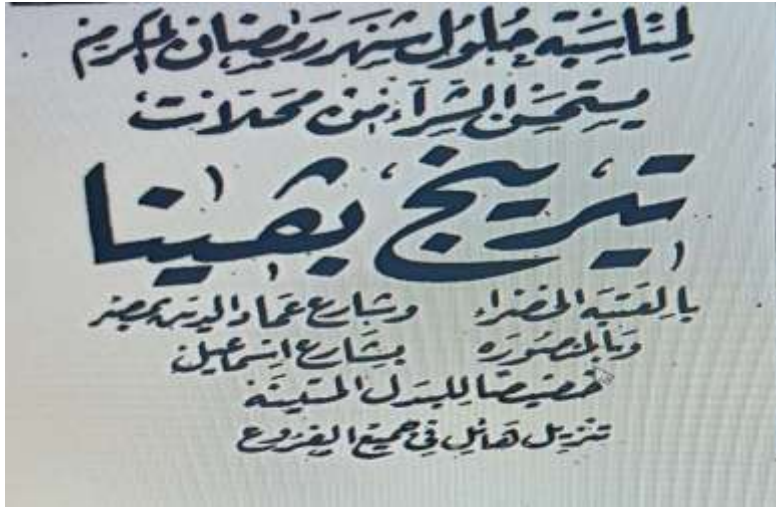 لمناسبة حلول شهر رمضان المكريم
يستحسن الشراء من محلات
تيرينج بڤينا
بالعتبة الخضراء وشارع عماد الدين بمصر
وبالمنصوره بشارع اسماعيل
خصيصا للبدل المتينة
تنزيل هائل في جميع الفروع